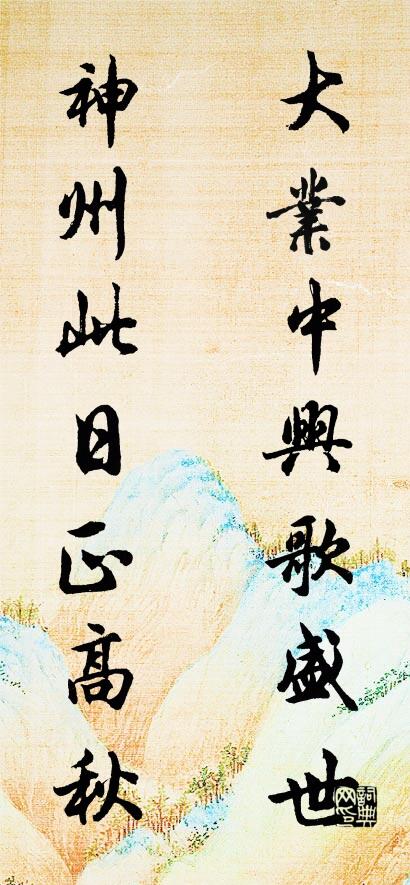 大業中興歌盛世
神州此日正高秋
詞典网名